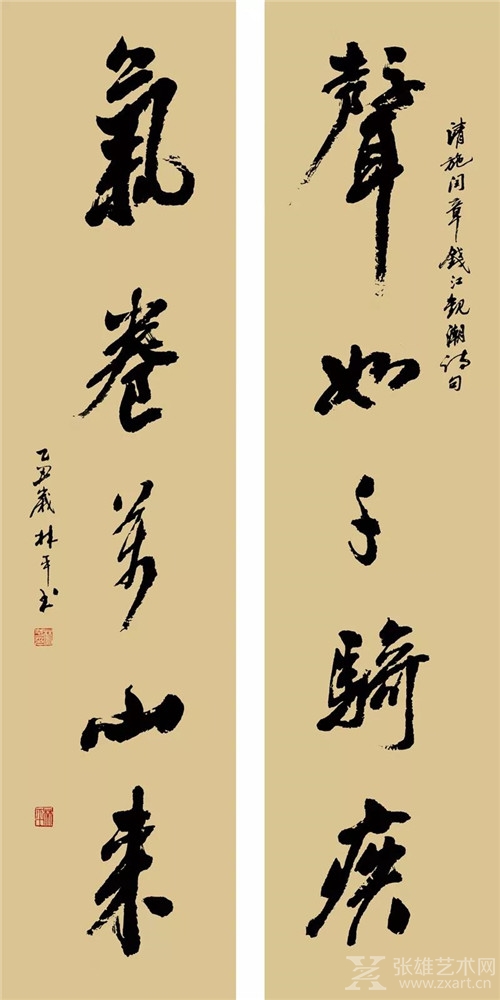 清施闰章錢江觀潮诗句
聲如千騎疾
氣卷萬山来
乙丑歲林平书
张雄艺术网
www.zxart.cn